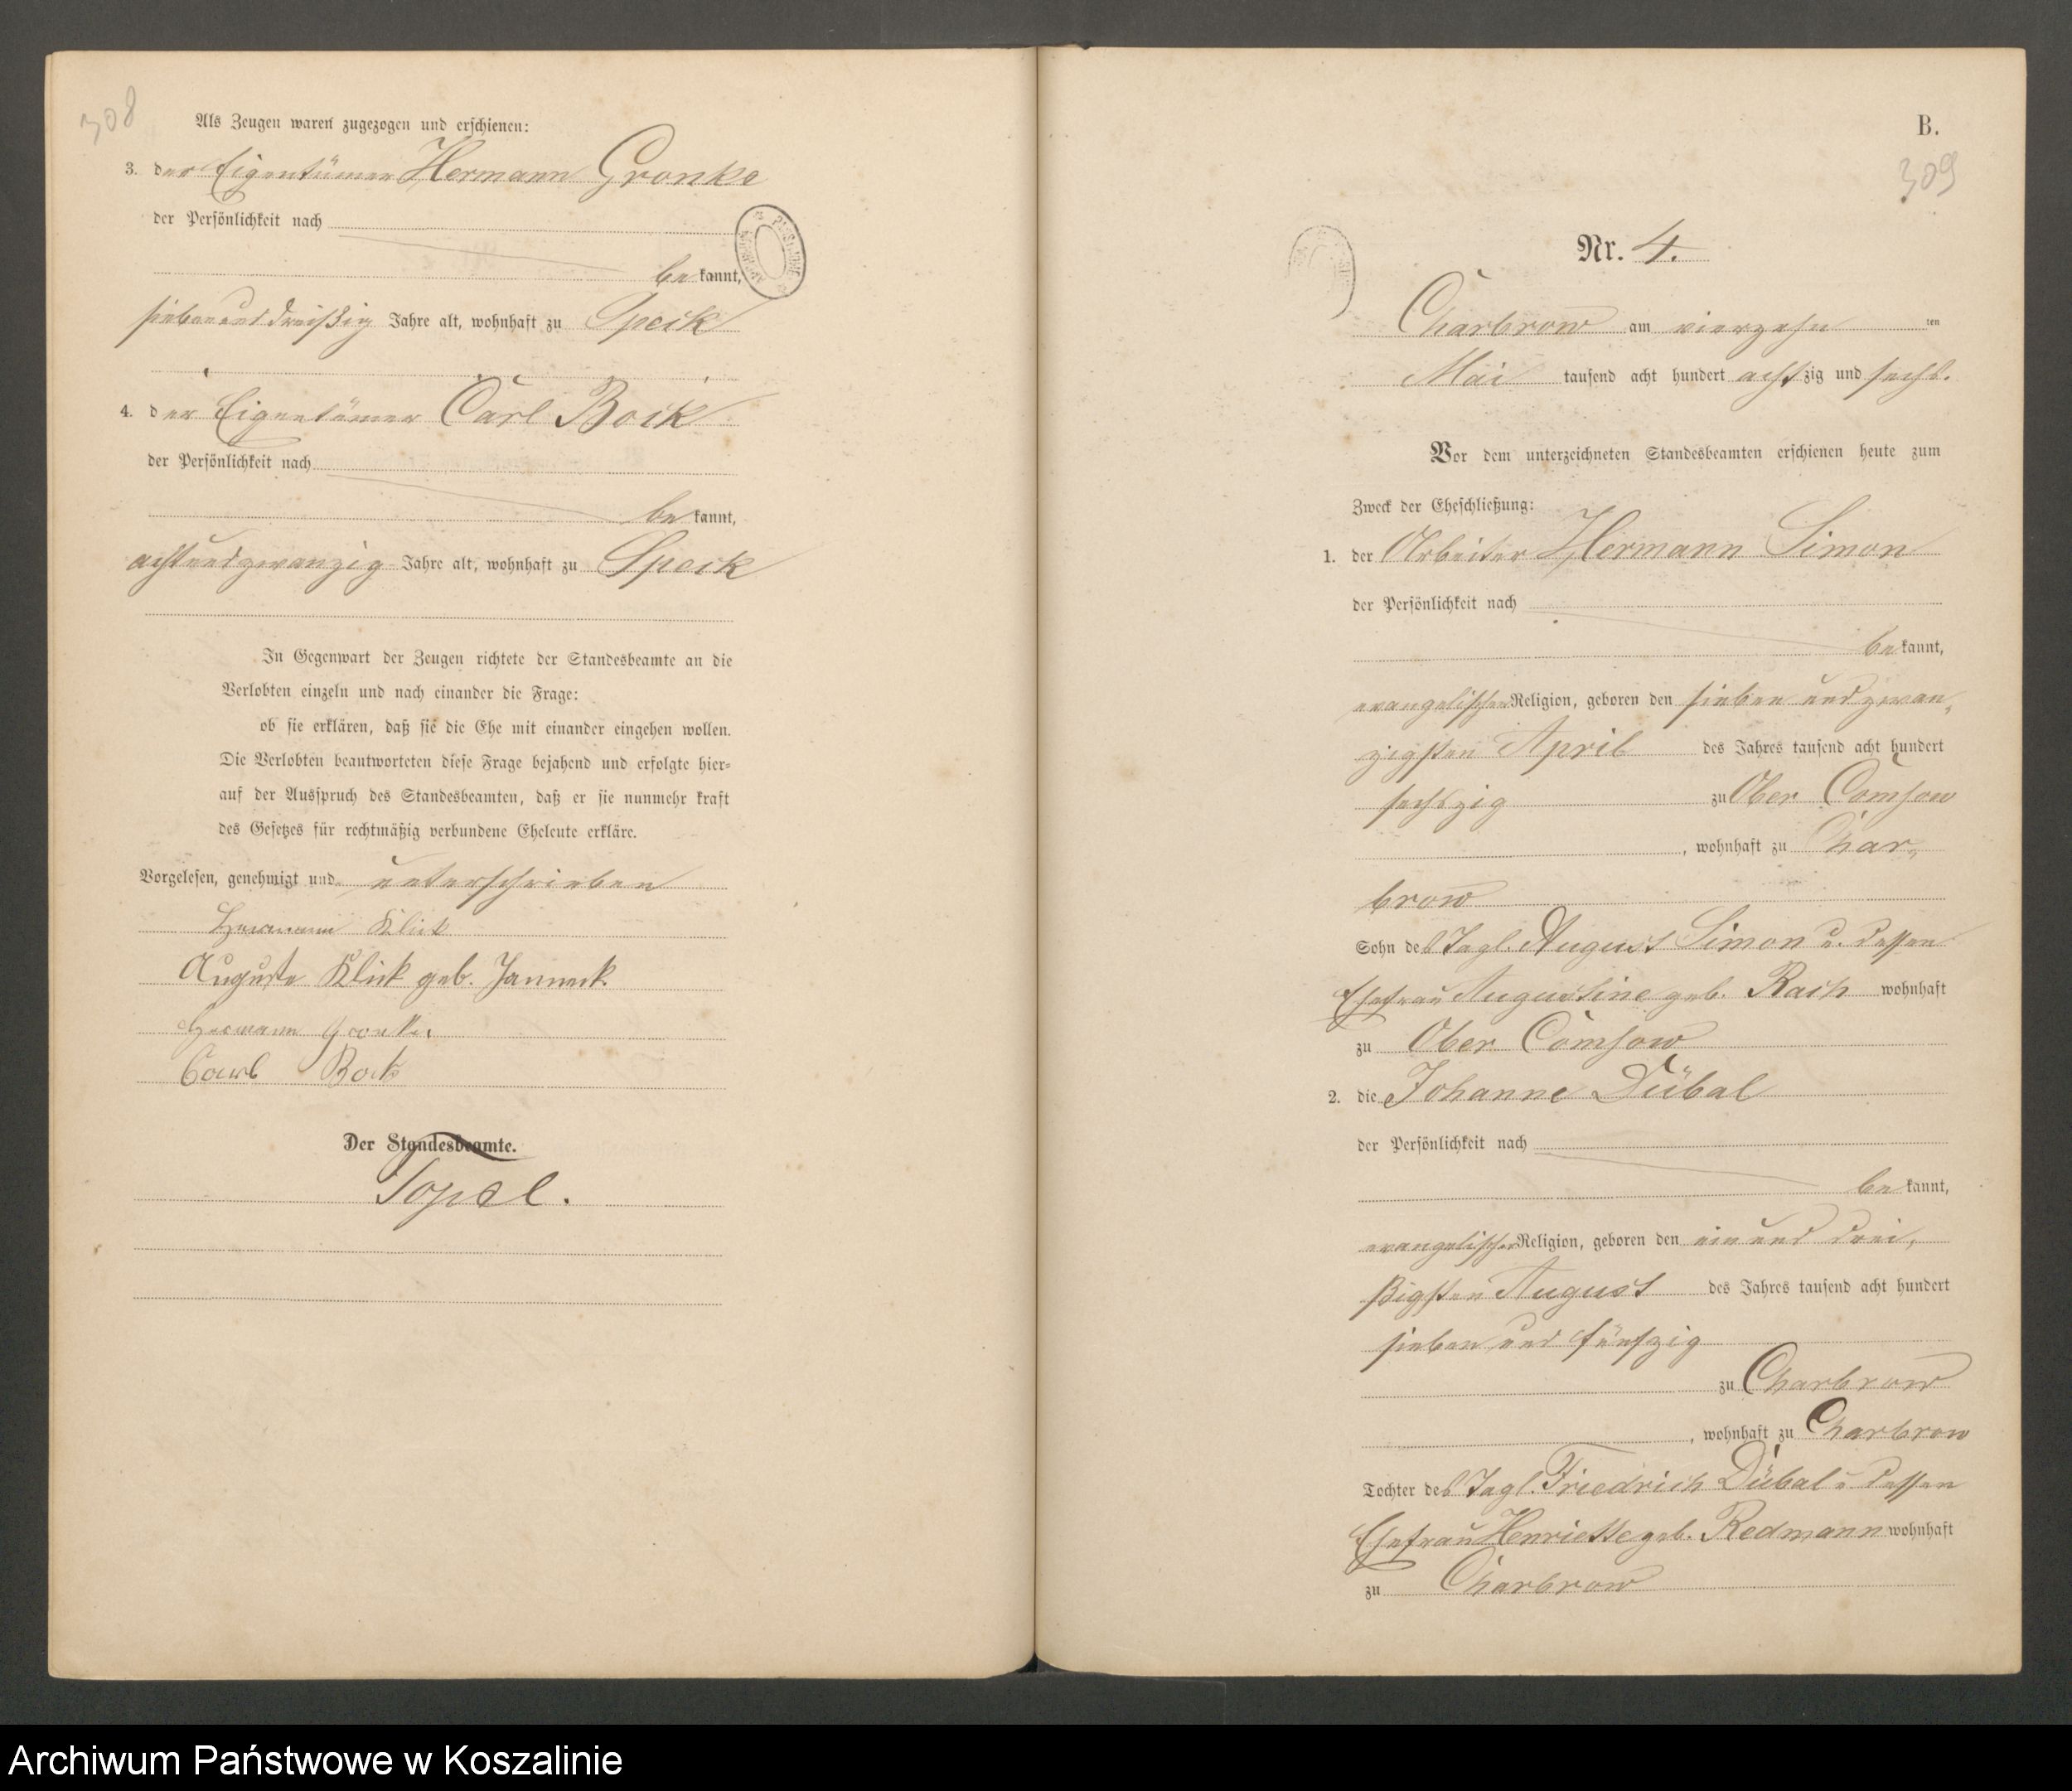 308
Als Zeugen waren zugezogen und erschienen:
3. der Eigentümer Hermann Gronke
der Persönlichkeit nach
bekannt,
siebenunddreißig Jahre alt, wohnhaft zu Speck
4. der Eigentümer Carl Bock
der Persönlichkeit nach
bekannt,
achtundzwanzig Jahre alt, wohnhaft zu Speck
In Gegenwart der Zeugen richtete der Standesbeamte an die
Verlobten einzeln und nach einander die Frage:
ob sie erklären, daß sie die Ehe mit einander eingehen wollen.
Die Verlobten beantworteten diese Frage bejahend und erfolgte hier-
auf der Ausspruch des Standesbeamten, daß er sie nunmehr kraft
des Gesetzes für rechtmäßig verbundene Eheleute erkläre.
Vorgelesen, genehmigt und unterschrieben
Hermann Klick
Auguste Klick geb. Janneck.
Hermann Gronke.
Carl Bock
Der Standesbeamte.
Topel.
B.
309
Nr. 4.
Charbrow am vierzehnten
Mai tausend acht hundert achtzig und sechs.
Vor dem unterzeichneten Standesbeamten erschienen heute zum
Zweck der Eheschließung:
1. der Arbeiter Hermann Simon
der Persönlichkeit nach
bekannt,
evangelischer Religion, geboren den sieben und zwan-
zigsten April des Jahres tausend acht hundert
sechszig zu Ober Comsow
, wohnhaft zu Char-
brow
Sohn des Tagl. August Simon u. dessen
Ehefrau Augustine geb. Rach wohnhaft
zu Ober Comsow
2. die Johanne Dübal
der Persönlichkeit nach
bekannt,
evangelischer Religion, geboren den ein und drei-
ßigsten August des Jahres tausend acht hundert
sieben und fünfzig
zu Charbrow
, wohnhaft zu Charbrow
Tochter des Tagl. Friedrich Dübal u dessen
Ehefrau Henriette geb. Redmann wohnhaft
zu Charbrow
Archiwum Państwowe w Koszalinie